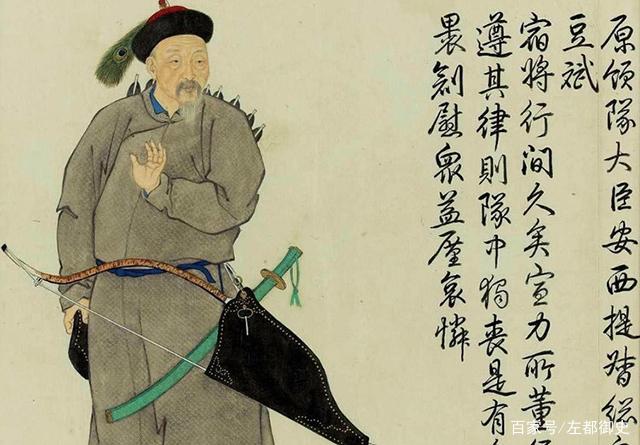 原領隊大臣安西提督總
豆斌
宿將行間久矣宣力所董
遵其律則隊中獨喪是有
裹創慰眾益廑哀憐
百家号/左都御史